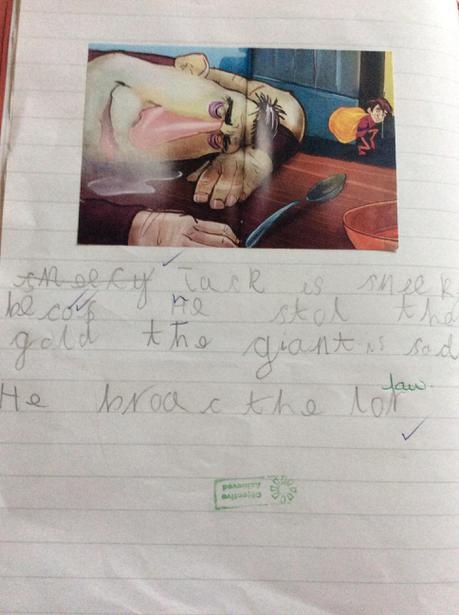 sneeky Jack is sneek
becos He stol the
gold the giant is sad
law.
He broac the lor
Objective
Achieved